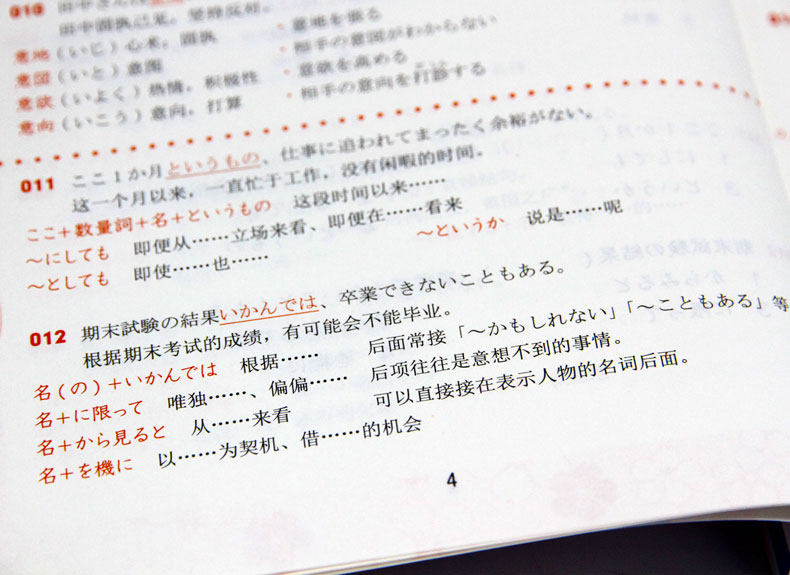 010
田中固执己见，坚持反对。
意地（いじ）心术，固执 ・意地を張る
意図（いと）意图 ・相手の意図がわからない
意欲（いよく）热情，积极性 ・意欲を高める
意向（いこう）意向，打算 ・相手の意向を打診する
011 ここ１か月というもの、仕事に追われてまったく余裕がない。
这一个月以来，一直忙于工作，没有闲暇的时间。
ここ＋数量詞＋名＋というもの 这段时间以来……
～にしても 即便从……立场来看、即便在……看来 ～というか 说是……呢
～としても 即使……也……
012 期末試験の結果いかんでは、卒業できないこともある。
根据期末考试的成绩，有可能会不能毕业。
名（の）＋いかんでは 根据…… 后面常接「～かもしれない」「～こともある」等
名＋に限って 唯独……、偏偏…… 后项往往是意想不到的事情。
名＋から見ると 从……来看 可以直接接在表示人物的名词后面。
名＋を機に 以……为契机、借……的机会
4